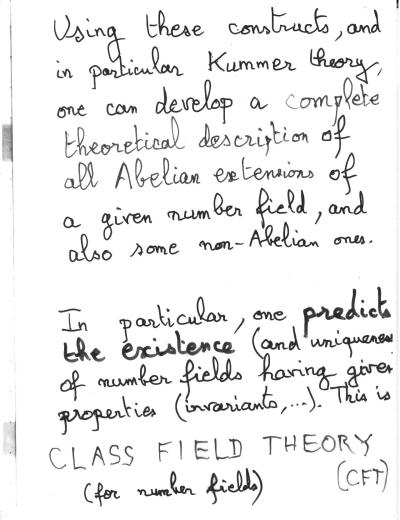 Using these constructs, and
in particular Kummer theory,
one can develop a complete
theoretical description of
all Abelian extensions of
a given number field, and
also some non-Abelian ones.
In particular, one predicts
the existence (and uniqueness
of number fields having given
properties (invariants,...). This is
CLASS FIELD THEORY
(for number fields) (CFT)